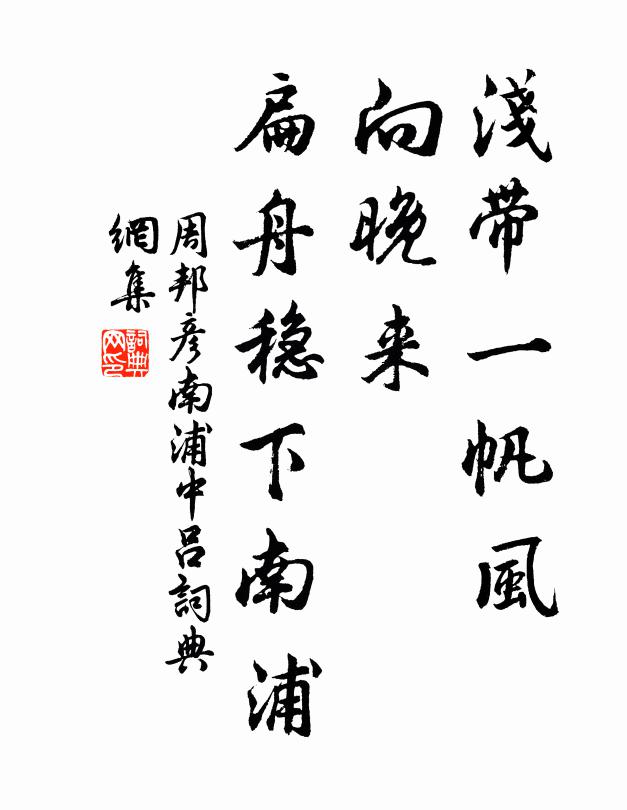 淺帶一帆風
向晚来
扁舟穏下南浦
周邦彦南浦中吕詞典
網集
詞典
网印